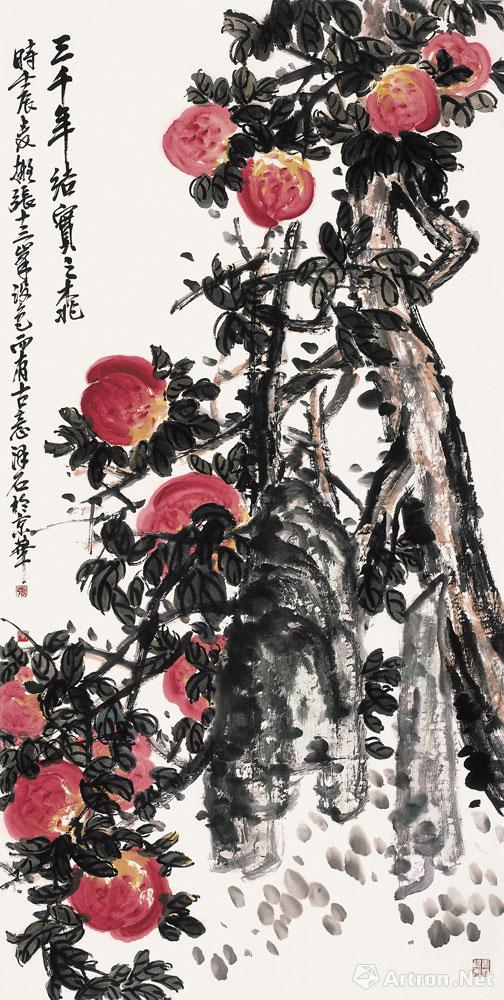 三千年结實之桃
時壬辰夏擬張十三峯設色而有古意澤石於京華
Artron.Net